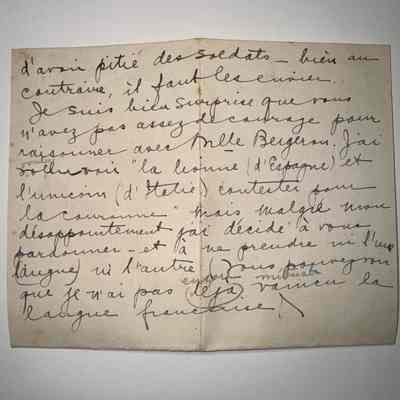 d'avoir pitié des soldats – bien au
contraire, il faut les envier.
Je suis bien surprise que vous
n'avez pas assez de courage pour
raisonner avec Mlle Bergeron. J'ai
voulu voir "la lionne (d'Espagne) et
l'unicorn (d'Italie) contester pour
la couronne" Mais malgré mon
désappointement j'ai décidé à vous
pardonner – et à ne prendre ni l'une
(langue) ni l'autre (vous pouvez voir
que je n'ai pas (déjà) vaincu la
langue française!)